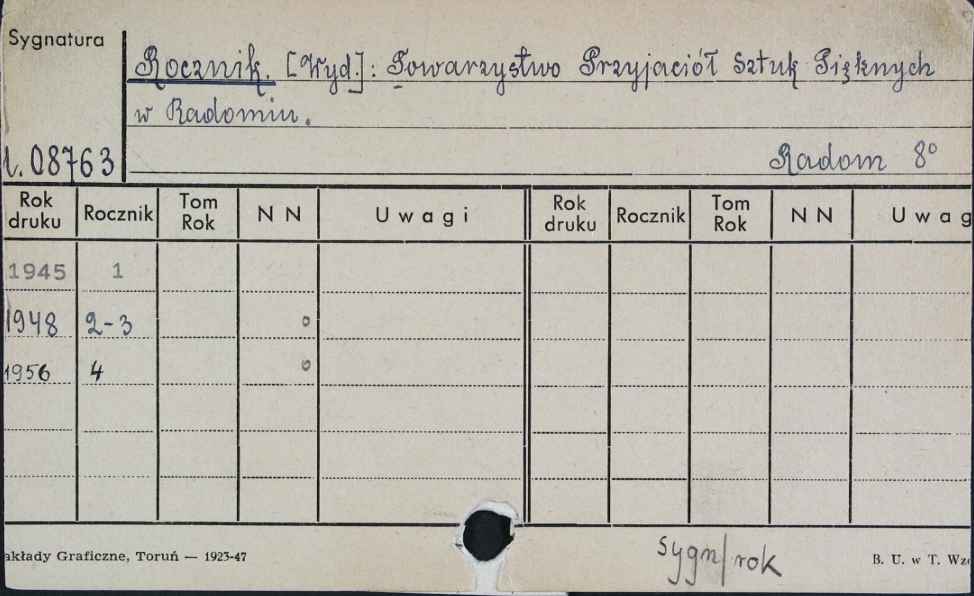 Sygnatura
Rocznik. [Wyd.]: Towarzystwo Przyjaciół Sztuk Pięknych
w Radomiu.
08763
Radom 8°
Rok druku Rocznik Tom Rok N N Uwagi Rok druku Rocznik Tom Rok N N Uwag
1945 1
1948 2-3 o
1956 4 o
sygn/rok
akłady Graficzne, Toruń — 1923-47 B. U. w T. Wz